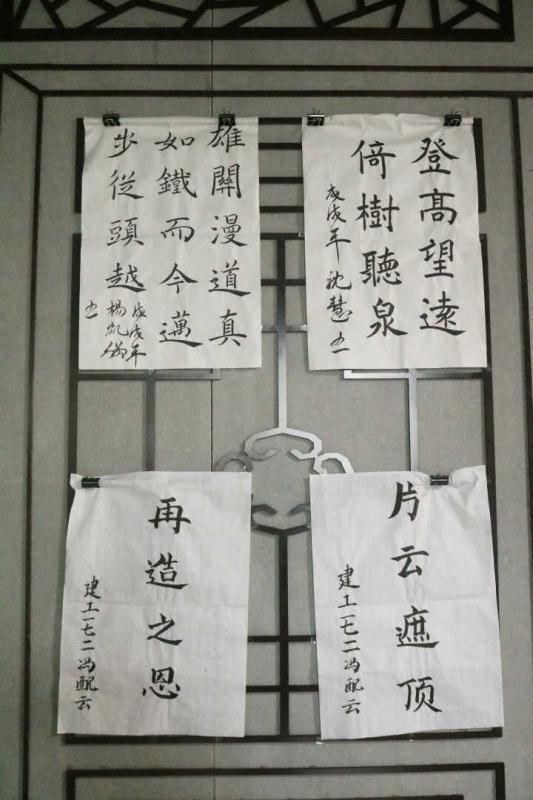 登高望遠
倚樹聽泉
戊戌年 沈慧 五一
雄關漫道真
如鐵而今邁
步從頭越
戊戌年
楊凱
片云遮顶
建工一七二冯配云
再造之恩
建工一七二冯配云